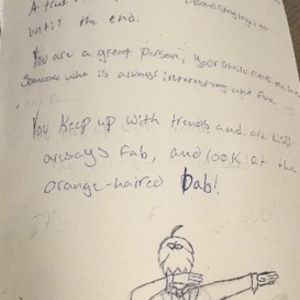 A true
until the end.
You are a great person, your smile
Someone who is always interesting and fun.
You keep up with trends and are
always fab, and look at the
orange-haired Dab!